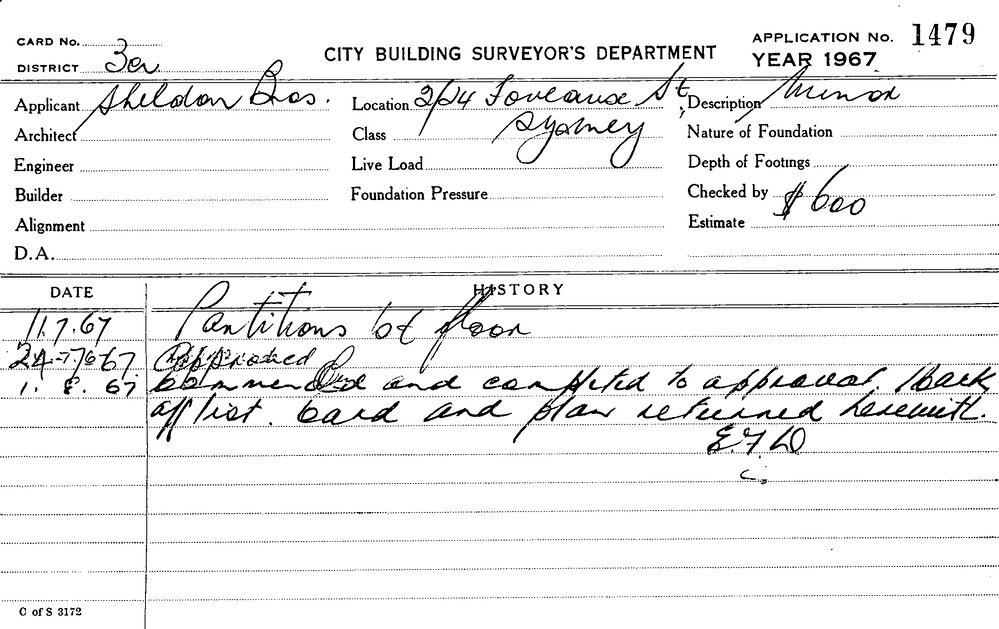 CARD No.
DISTRICT 3er
CITY BUILDING SURVEYOR'S DEPARTMENT
APPLICATION No. 1479
YEAR 1967
Applicant Sheldon Bros.
Location 2/24 Foveaux St,
Sydney
Description Minor
Architect
Class
Nature of Foundation
Engineer
Live Load
Depth of Footings
Builder
Foundation Pressure
Checked by
$600
Alignment
Estimate
D.A.
DATE HISTORY
11.7.67 Partitions 1st floor
24-7/67. Approved
1. 8. 67 Commenced and completed to approval. Mark
off list. Card and plan returned herewith.
E.F.D
C of S 3172